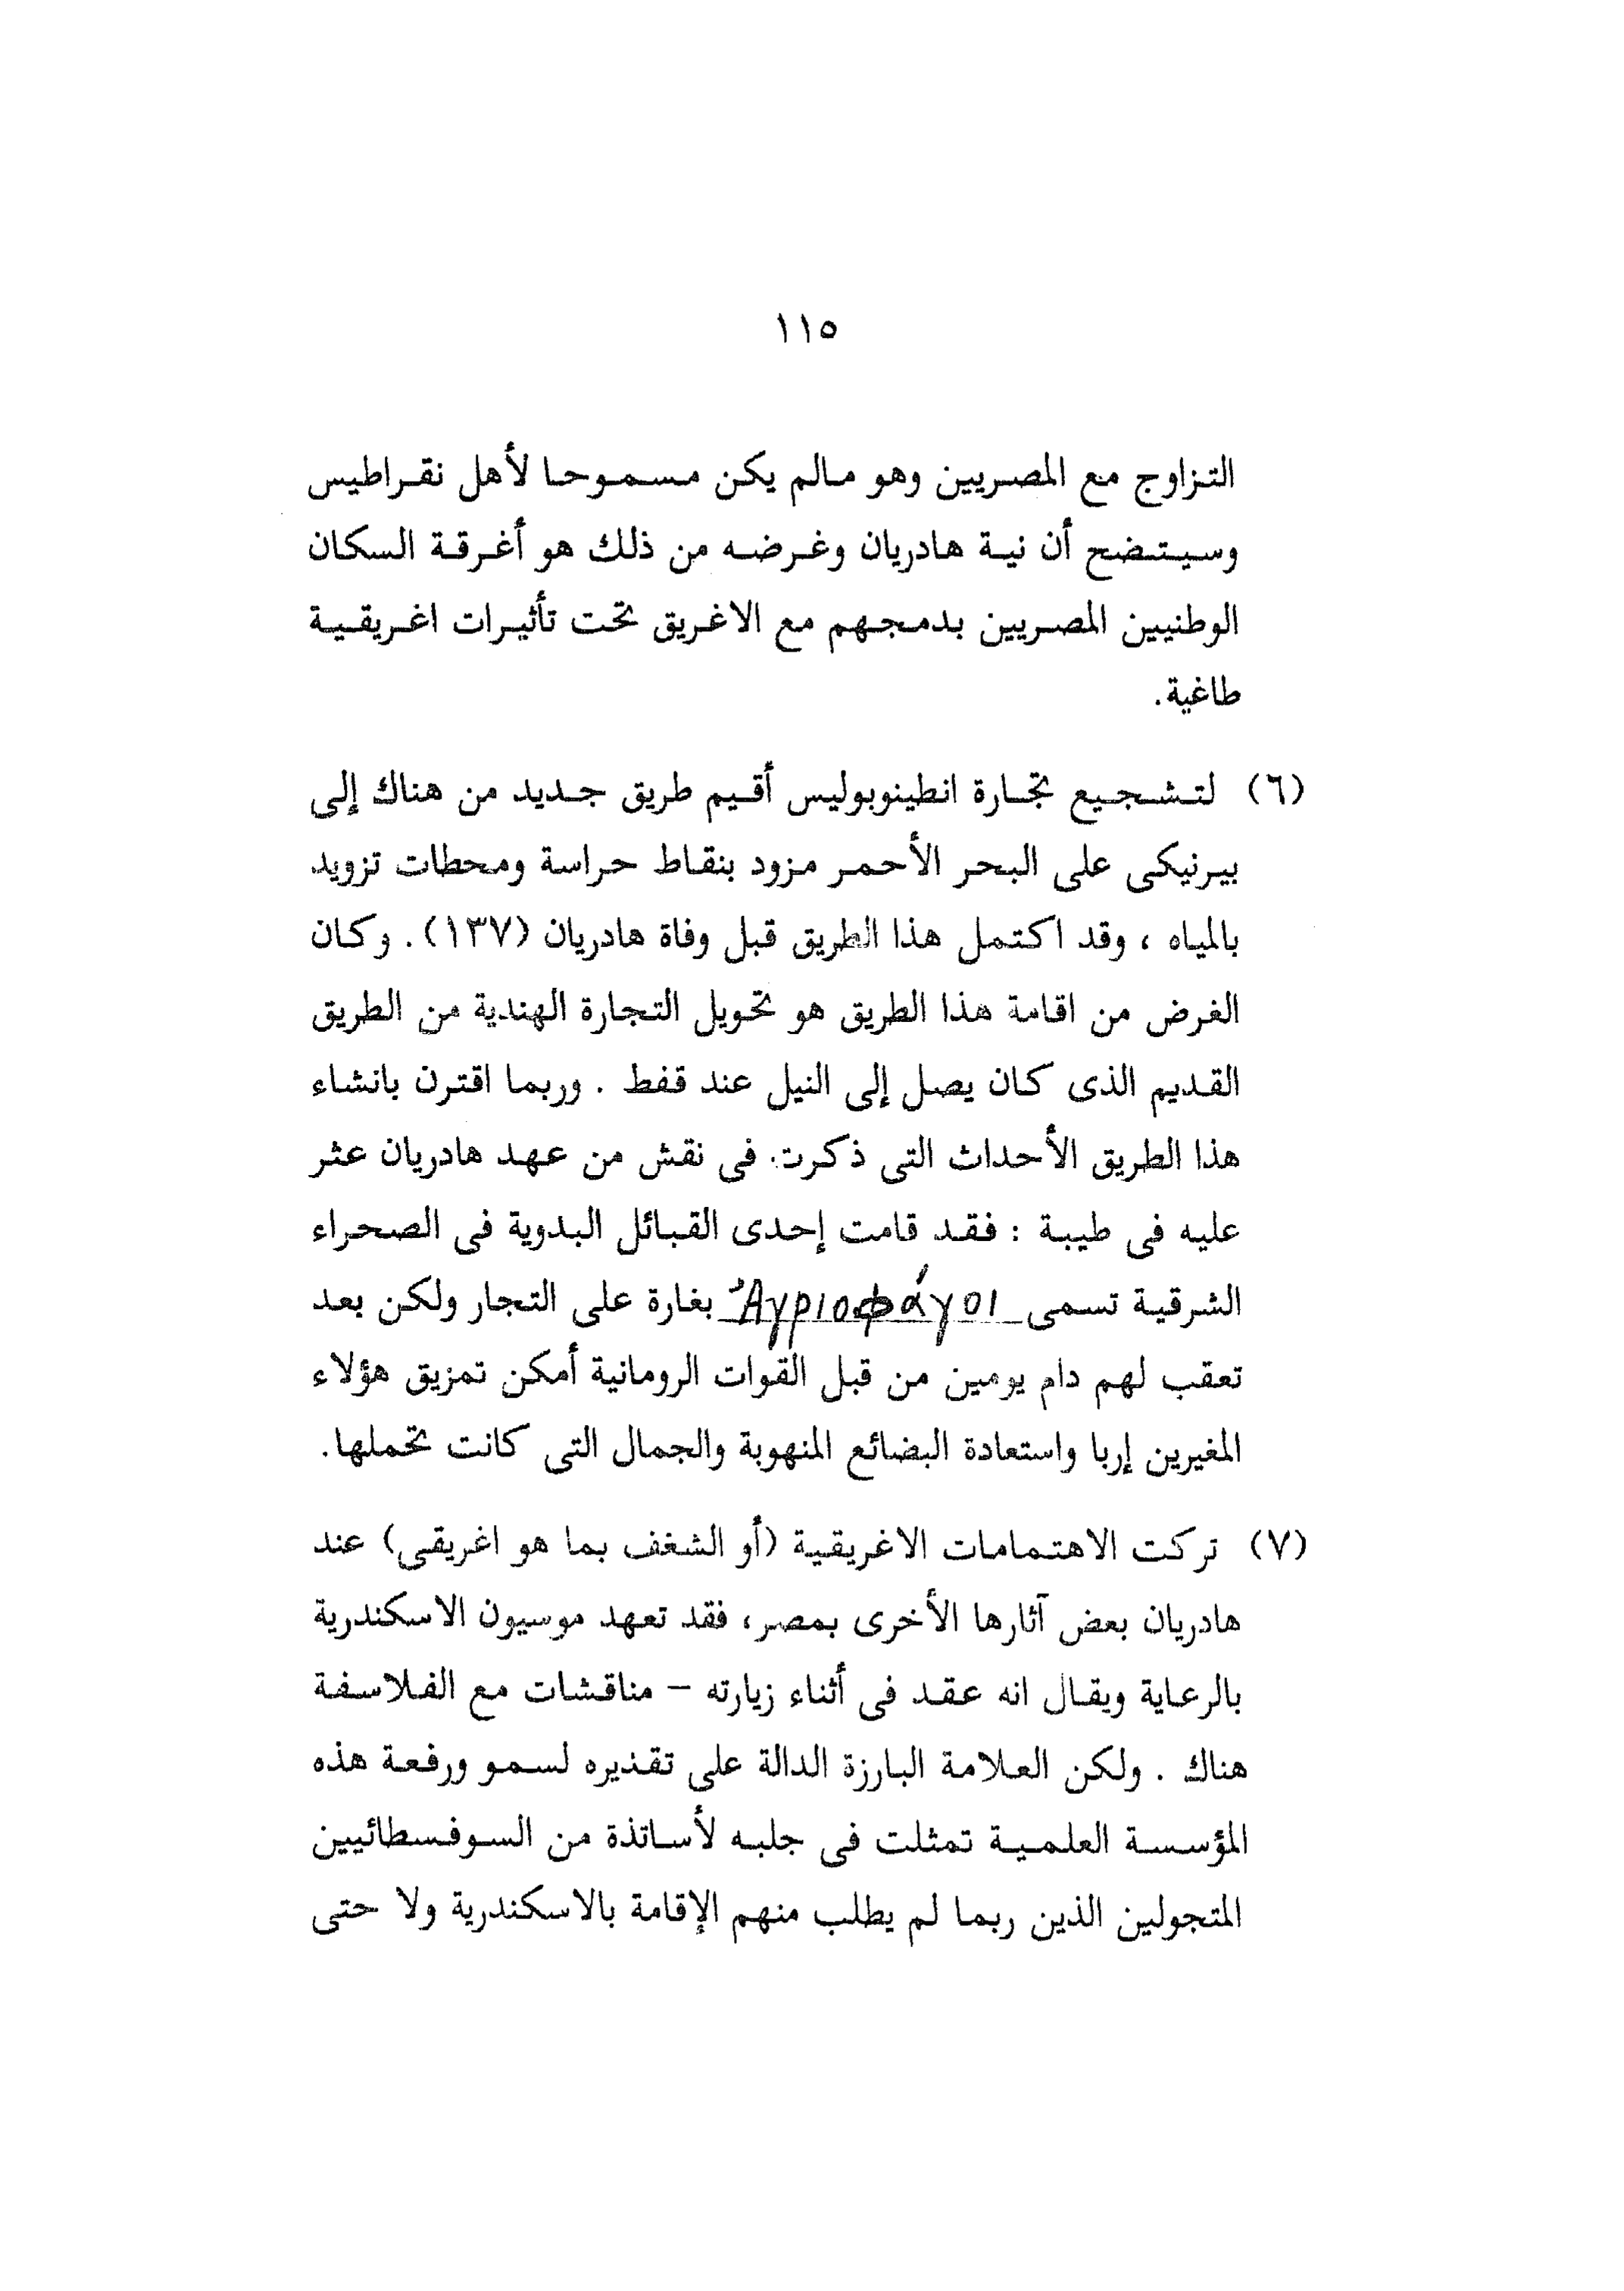 ١١٥
التزاوج مع المصريين وهو مالم يكن مسموحا لأهل نقراطيس
وسيتضح أن نية هادريان وغرضه من ذلك هو أغرقة السكان
الوطنيين المصريين بدمجهم مع الاغريق تحت تأثيرات اغريقية
طاغية.
(٦) لتشجيع تجارة انطينوبوليس أقيم طريق جديد من هناك إلى
بيرنيكى على البحر الأحمر مزود بنقاط حراسة ومحطات تزويد
بالمياه ، وقد اكتمل هذا الطريق قبل وفاة هادريان (١٣٧). وكان
الغرض من اقامة هذا الطريق هو تحويل التجارة الهندية من الطريق
القديم الذى كان يصل إلى النيل عند قفط . وربما اقترن بانشاء
هذا الطريق الأحداث التى ذكرت فى نقش من عهد هادريان عثر
عليه فى طيبة : فقد قامت إحدى القبائل البدوية فى الصحراء
الشرقية تسمى Ἀγριοφάγοι بغارة على التجار ولكن بعد
تعقب لهم دام يومين من قبل القوات الرومانية أمكن تمزيق هؤلاء
المغيرين إربا واستعادة البضائع المنهوبة والجمال التى كانت تحملها.
(٧) تركت الاهتمامات الاغريقية (أو الشغف بما هو اغريقى) عند
هادريان بعض آثارها الأخرى بمصر، فقد تعهد موسيون الاسكندرية
بالرعاية ويقال انه عقد فى أثناء زيارته – مناقشات مع الفلاسفة
هناك . ولكن العلامة البارزة الدالة على تقديره لسمو ورفعة هذه
المؤسسة العلمية تمثلت فى جلبه لأساتذة من السوفسطائيين
المتجولين الذين ربما لم يطلب منهم الإقامة بالاسكندرية ولا حتى